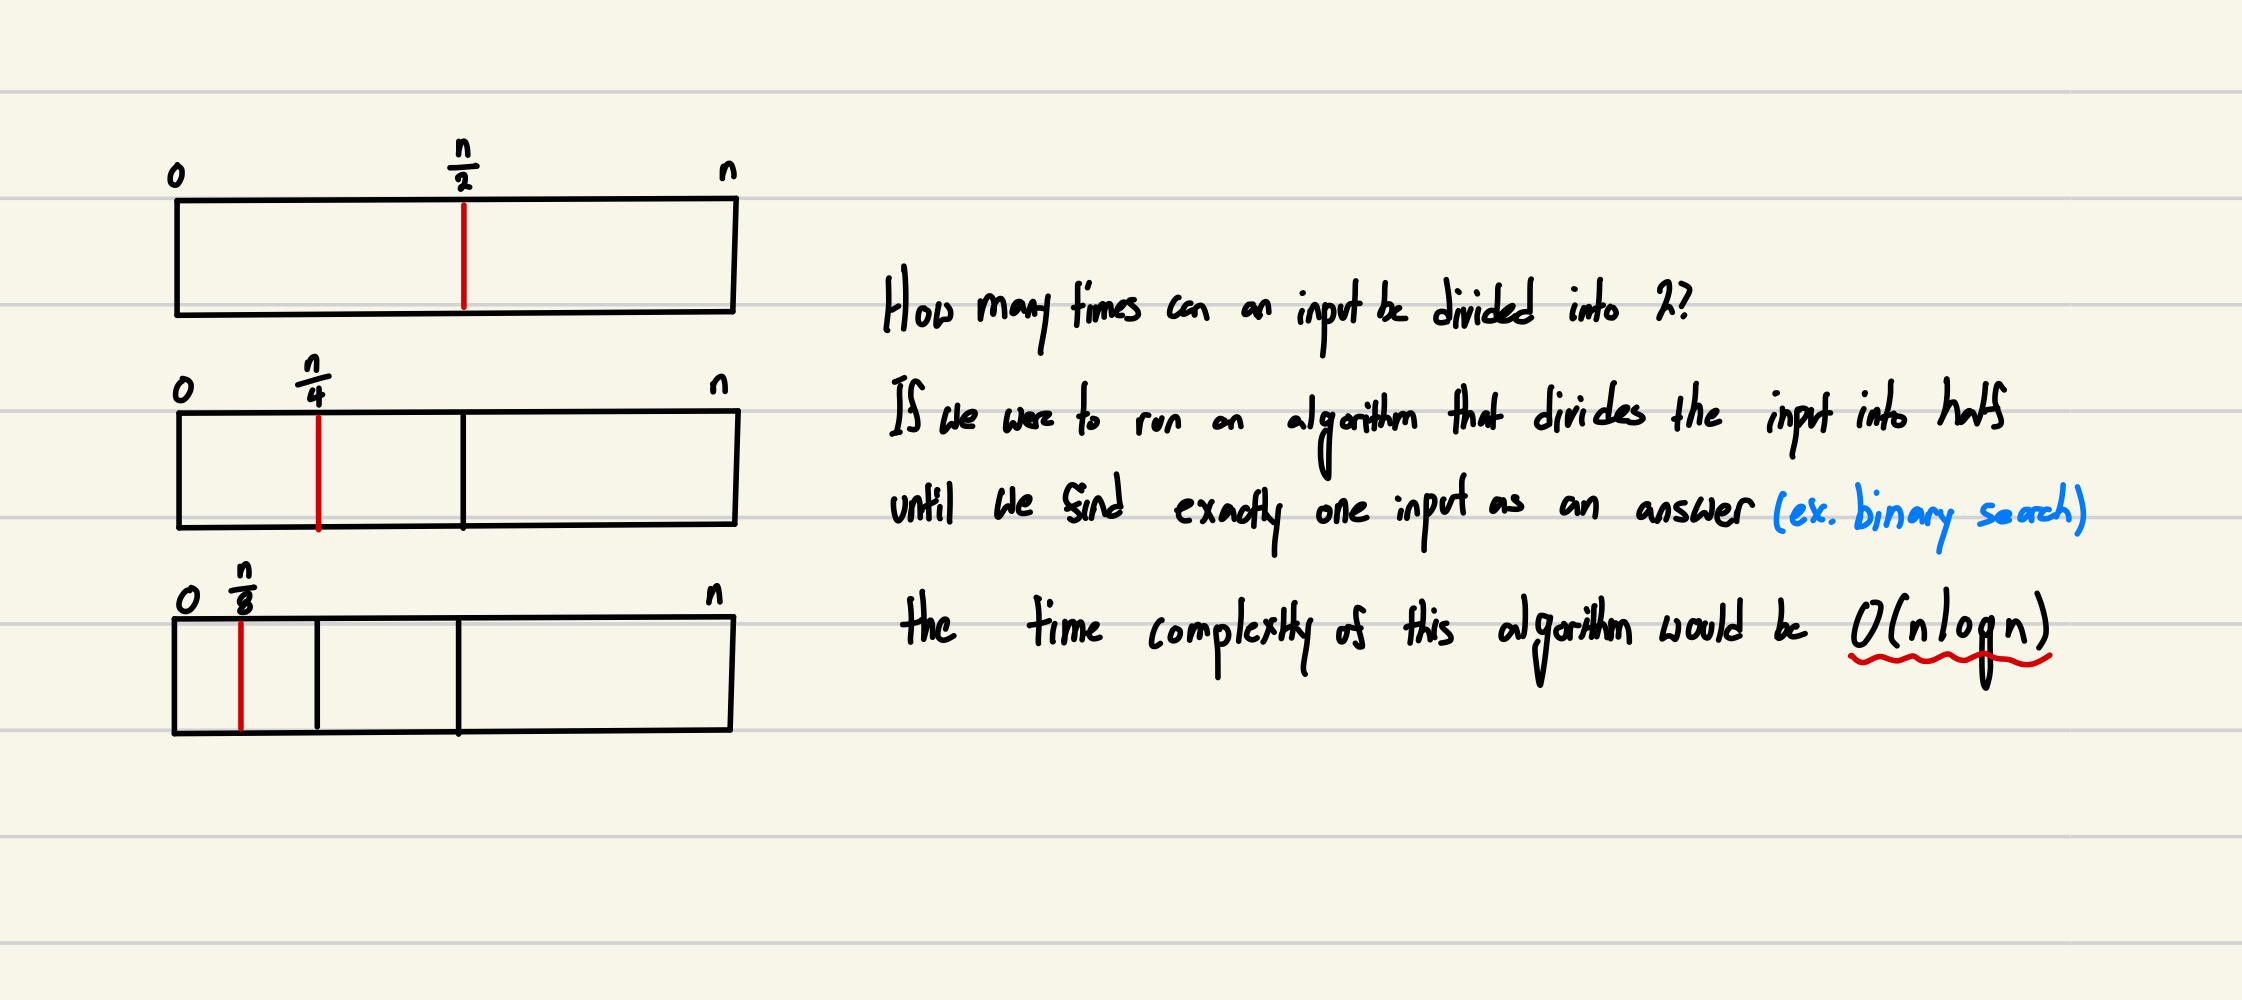 0 n/2 n
How many times can an input be divided into 2?
0 n/4 n
If we were to run an algorithm that divides the input into half
until we find exactly one input as an answer (ex. binary search)
0 n/8 n
the time complexity of this algorithm would be O(nlogn)